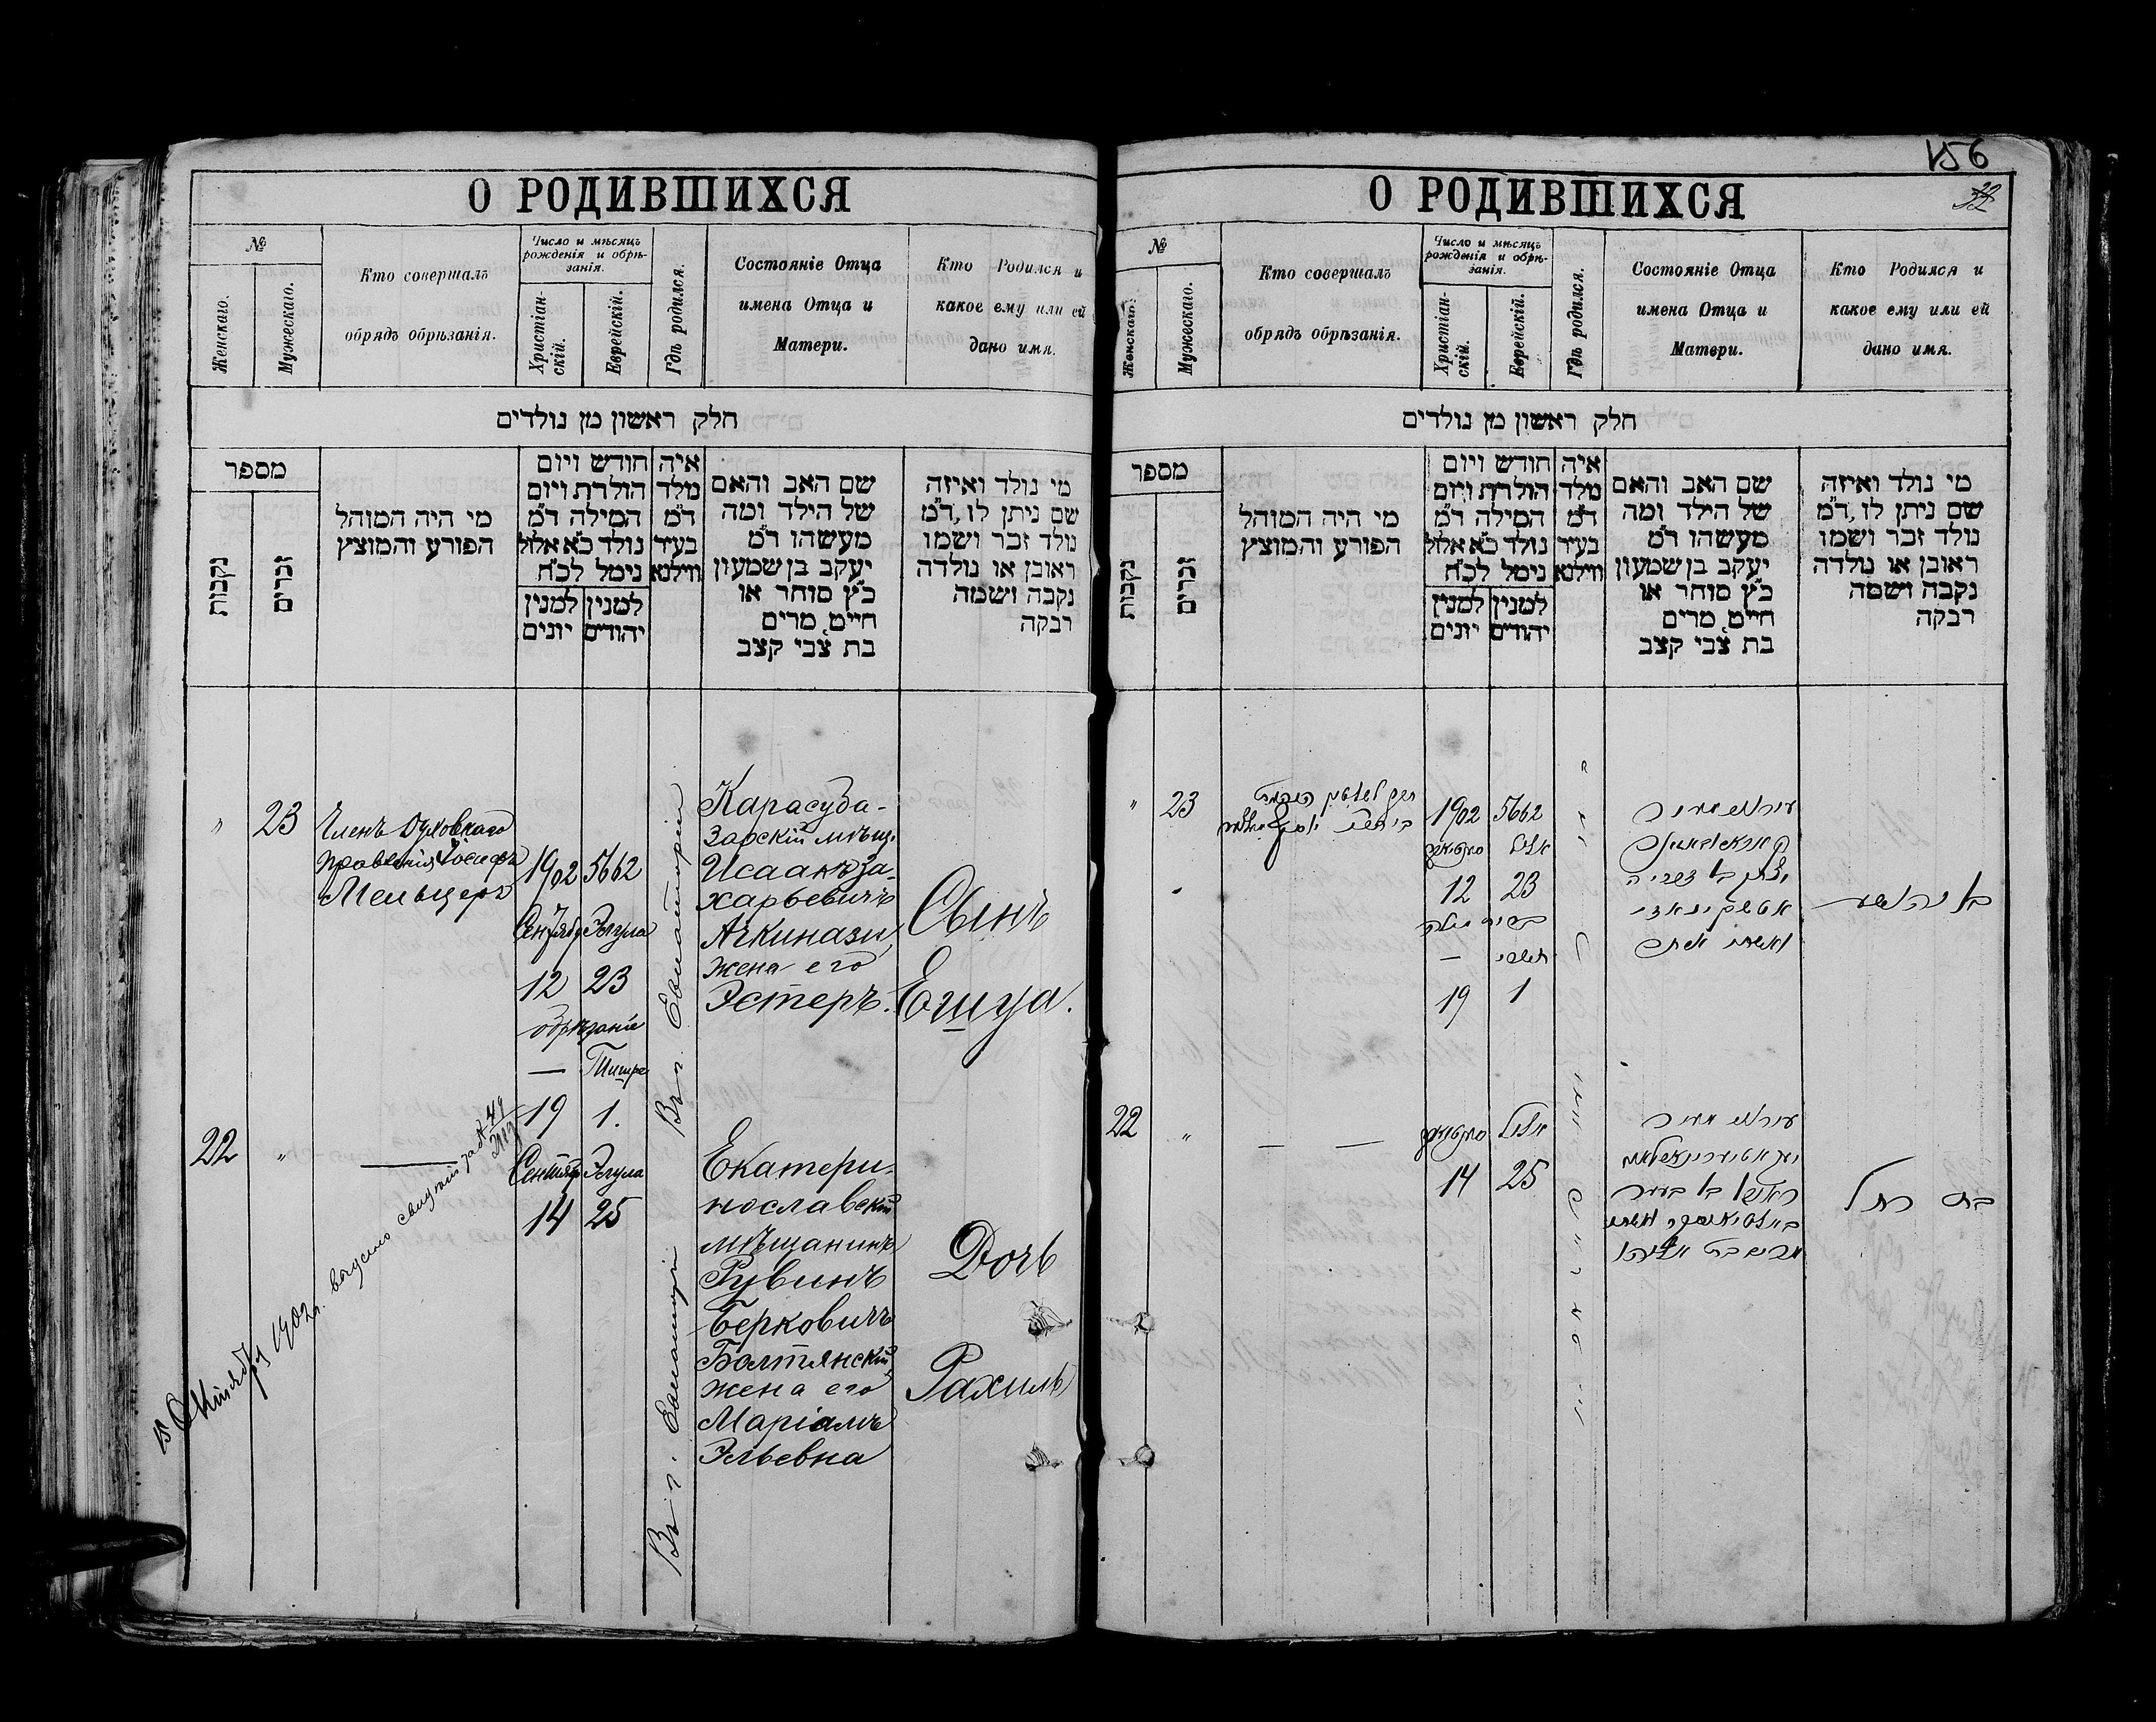 О РОДИВШИХСЯ
№
Женскаго.
Мужескаго.
Кто совершалъ
обрядъ обрѣзанія.
Число и мѣсяцъ
рожденія и обрѣ-
занія.
Христіан-
скій.
Еврейскій.
Гдѣ родился.
Состояніе Отца
имена Отца и
Матери.
Кто Родился и
какое ему или ей
дано имя.
חלק ראשון מן נולדים
מספר
נקבות
זכרים
מי היה המוהל
הפורע והמוצץ
חודש ויום
הולדת ויום
המילה ד"מ
נולד כ"א אלול
נימל לכ"ח
למנין
יונים
למנין
יהודים
איה
מלד
ד"מ
בעיר
ווילנא
שם האב והאם
של הילד ומה
מעשהו ד"מ
יעקב בן שמעון
כ"ץ סוחר או
חייט, מרים
בת צבי קצב
מי נולד ואיזה
שם ניתן לו, ד"מ
נולד זכר ושמו
ראובן או נולדה
נקבה ושמה
רבקה
" 23
Членъ Духовнаго
правленія Іосифъ
Мельцеръ
1902 5662
Сентябр Элула
12 23
обрѣзаніе
— Тишре
19 1.
Въ г. Евпаторіи
Карасуба-
зарскій мѣщ.
Исаакъ За-
харьевичъ
Ачкинази,
жена его
Эстеръ.
Сынъ
Ешуа.
22 "
—
Сентябр Элула
14 25
Въ г. Евпаторіи
Екатери-
нославскій
мѣщанинъ
Рувинъ
Берковичъ
Болтянскій
жена его
Маріамъ
Эльевна
Дочь
Рахиль
15 Октября 1902 г. выдано
О РОДИВШИХСЯ
156
22
№
Женскаго.
Мужескаго.
Кто совершалъ
обрядъ обрѣзанія.
Число и мѣсяцъ
рожденія и обрѣ-
занія.
Христіан-
скій.
Еврейскій.
Гдѣ родился.
Состояніе Отца
имена Отца и
Матери.
Кто Родился и
какое ему или ей
дано имя.
חלק ראשון מן נולדים
מספר
נקבות
זכרים
מי היה המוהל
הפורע והמוצץ
חודש ויום
הולדת ויום
המילה ד"מ
נולד כ"א אלול
נימל לכ"ח
למנין
יונים
למנין
יהודים
איה
מלד
ד"מ
בעיר
ווילנא
שם האב והאם
של הילד ומה
מעשהו ד"מ
יעקב בן שמעון
כ"ץ סוחר או
חייט, מרים
בת צבי קצב
מי נולד ואיזה
שם ניתן לו, ד"מ
נולד זכר ושמו
ראובן או נולדה
נקבה ושמה
רבקה
" 23
1902 5662
אלול
12 23
— תשרי
19 1
יצחק בן זכריה
אשקינאזי
ואשתו אסתר
בן יהושע
22 "
— —
אלול
14 25
ראובן בן
בת רחל